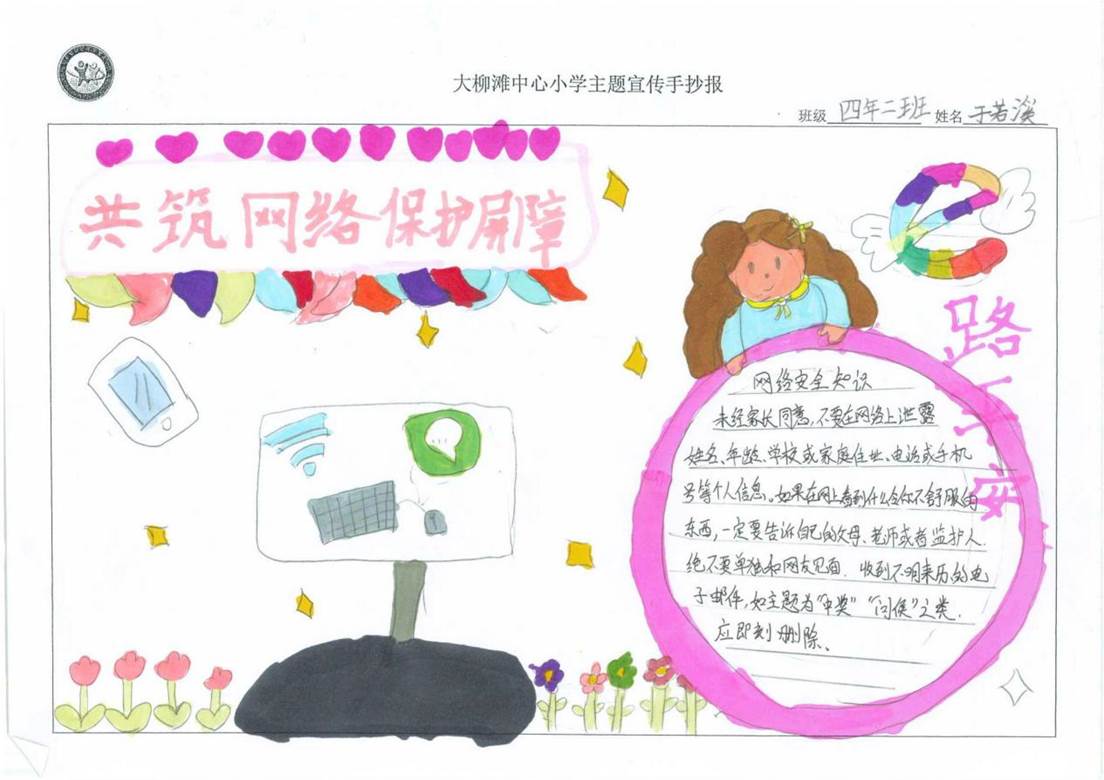 大柳滩中心小学主题宣传手抄报
班级 四年二班 姓名 于若溪
共筑网络保护屏障
e
路平安
网络安全知识
未经家长同意,不要在网络上泄露
姓名、年龄、学校或家庭住业、电话或手机
号等个人信息。如果在网上看到什么令你不舒服的
东西,一定要告诉自己的父母、老师或者监护人.
绝不要单独和网友见面. 收到不明来历的电
子邮件,如主题为“中奖”“问侯”之类.
应即刻删除、